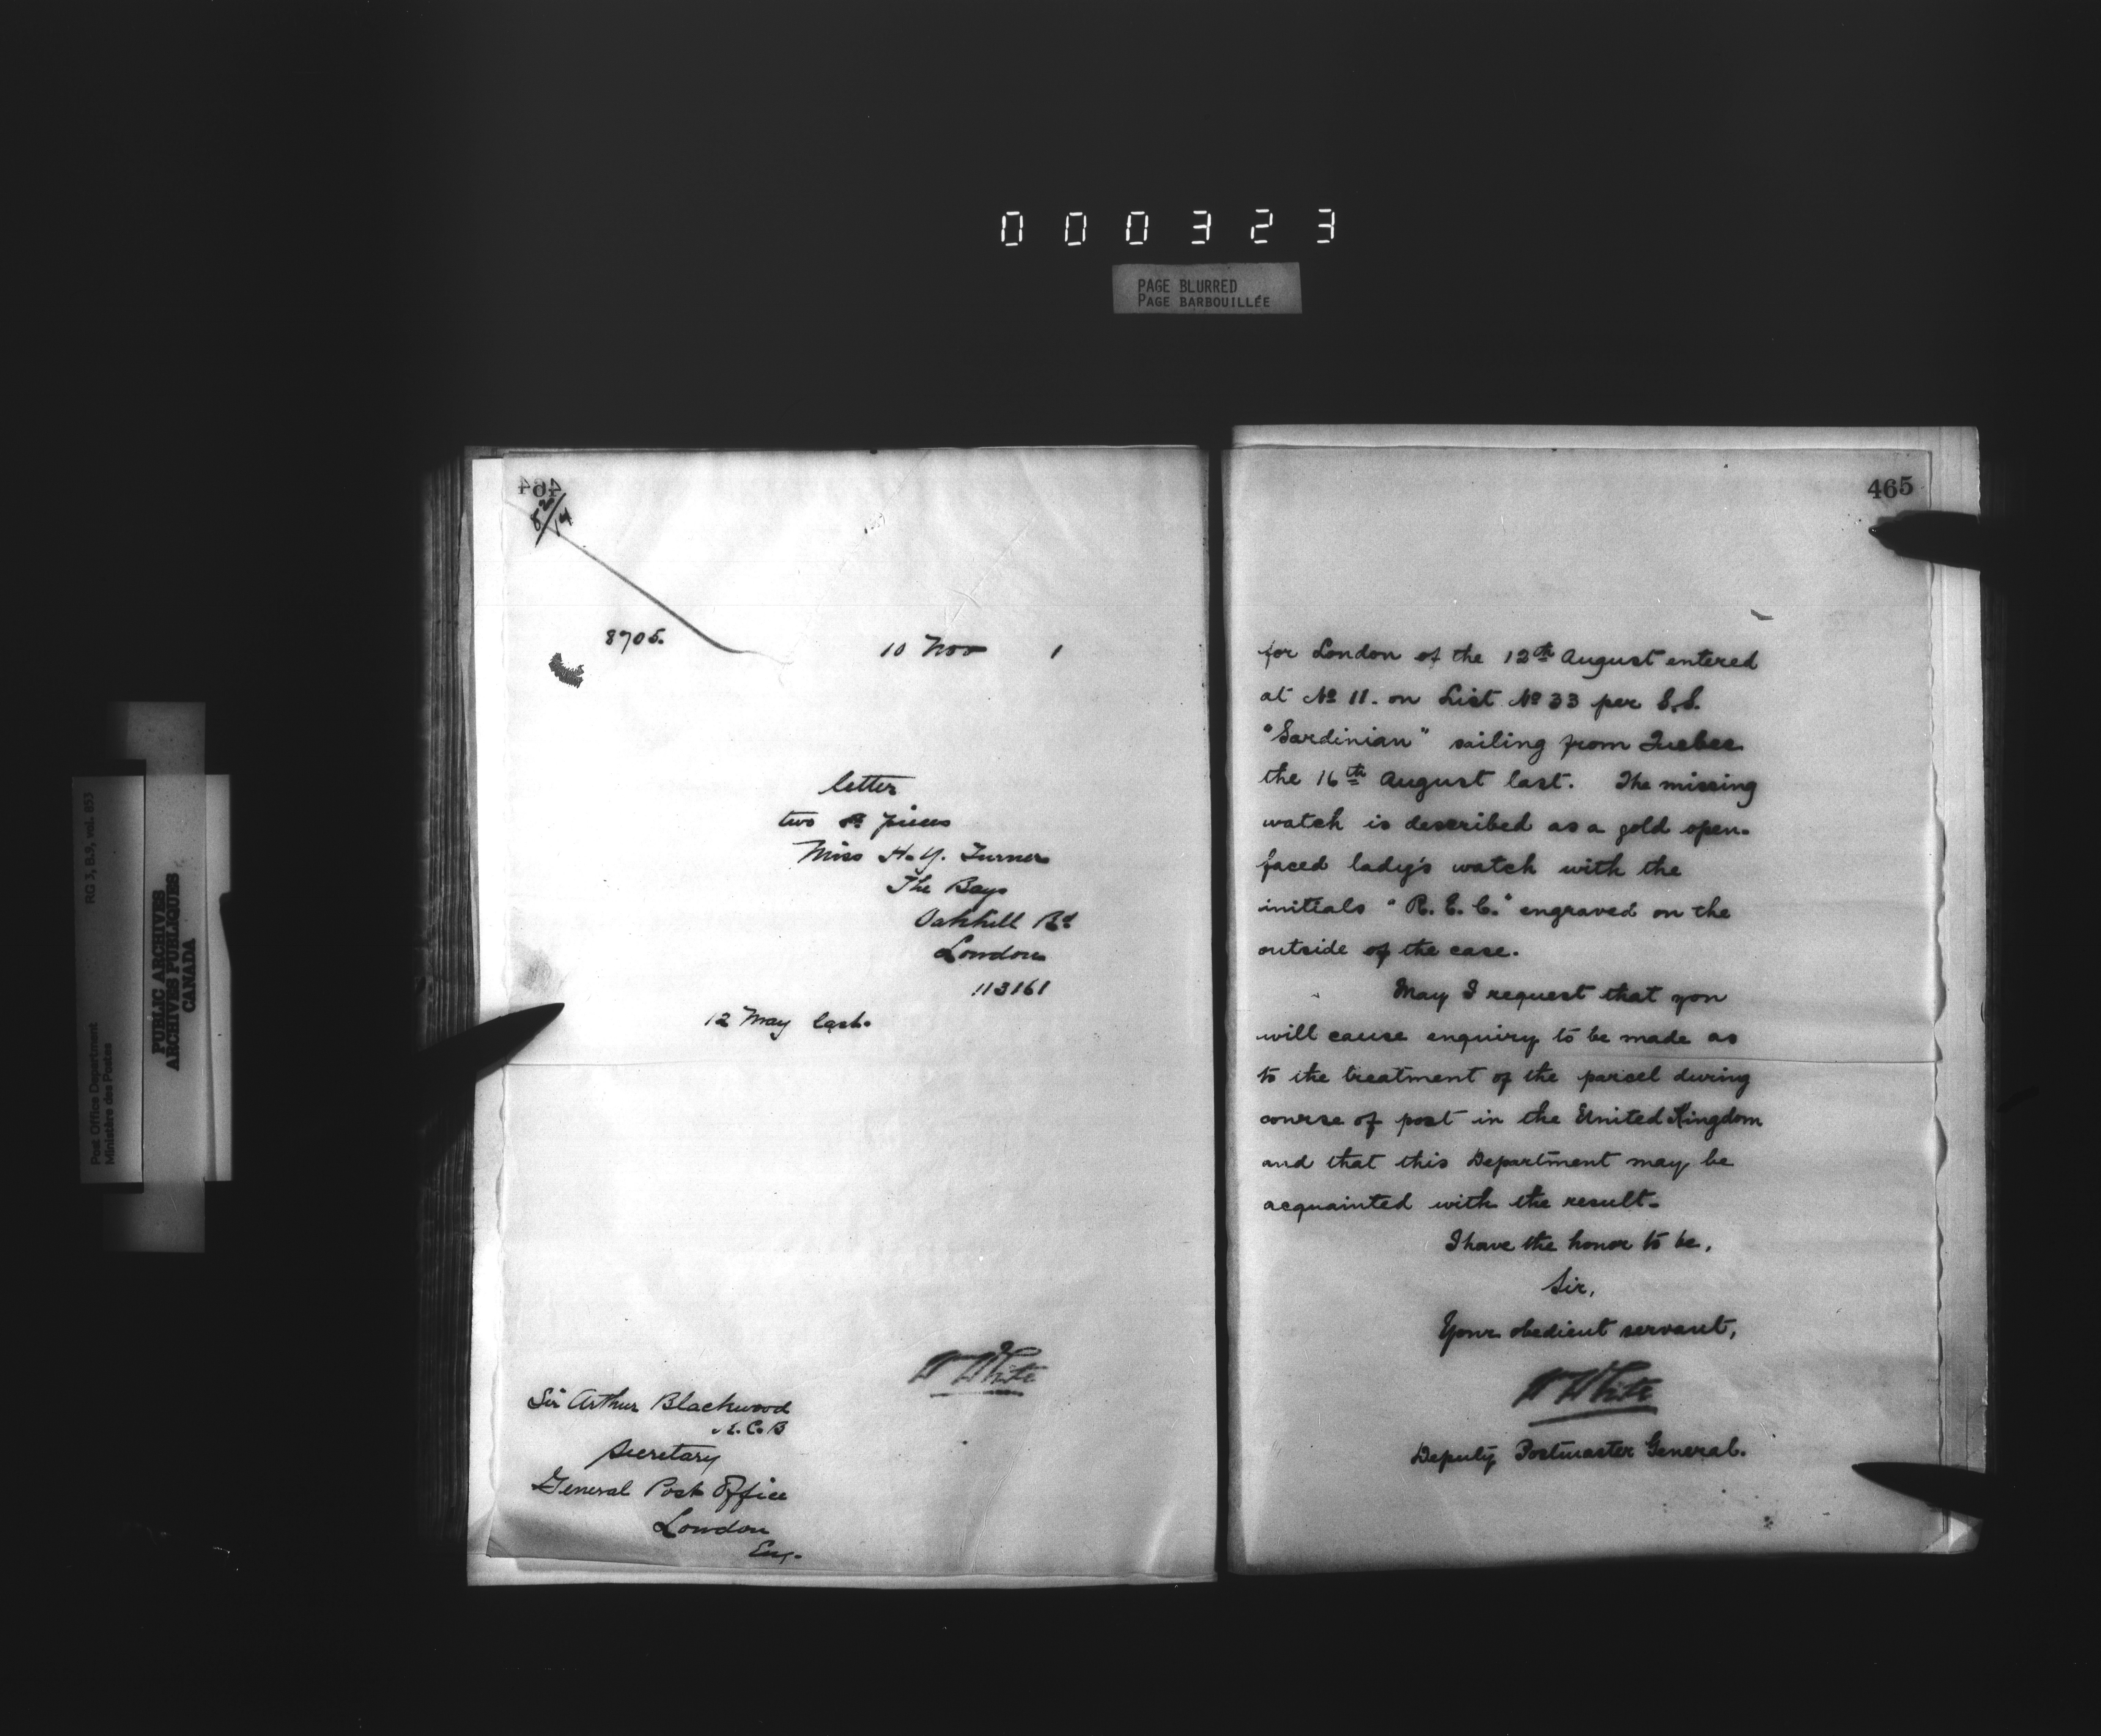 000323
PAGE BLURRED
PAGE BARBOUILLÉE
RG 3, B.9, vol. 853
Post Office Department
Ministère des Postes
PUBLIC ARCHIVES
ARCHIVES PUBLIQUES
CANADA
464
8705.
10 Nov 1
letter
two pieces
Miss H. Y. Turner
The Bays
Oakhill Rd
London
113161
12 May last.
W White
Sir Arthur Blackwood
K.C.B
Secretary
General Post Office
London
Eng.
465
for London of the 12th August entered
at No 11. on List No 33 per S.S.
"Sardinian" sailing from Quebec
the 16th August last. The missing
watch is described as a gold open-
faced lady's watch with the
initials "R. E. C." engraved on the
outside of the case.
May I request that you
will cause enquiry to be made as
to the treatment of the parcel during
course of post in the United Kingdom
and that this Department may be
acquainted with the result.
I have the honor to be,
Sir,
Your obedient servant,
W White
Deputy Postmaster General.